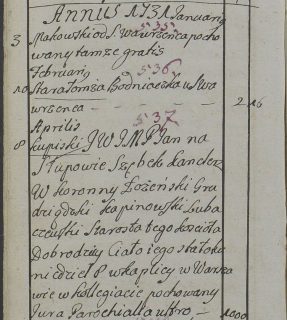 ANNUS 1731 Januarij
535
3 Makowski od S. Wawrzenca pocho
wany tamze gratis
Februarij 536
10 Stara Tomza Bodniczka u S Wa
wrzenca 2 16
Aprilis 537
8 kupiski J W J M P Jan na
Słupowie Szębek kanclerz
W koronny Łozenski Gra
kapinowski Luba
czewski Starosta tego kosciola
Dobrodziey Ciało iego stało tu
niedziel 8 w kaplicy w Warsza
wie w kollegiacie pochowany
Jura Parochialia ultro 1000